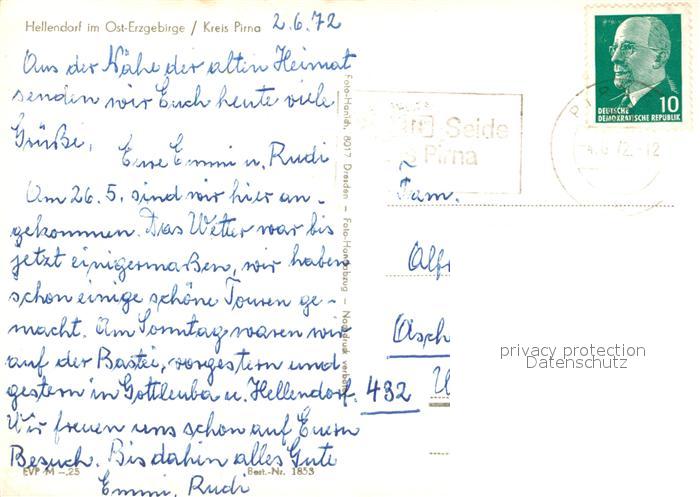 Hellendorf im Ost-Erzgebirge / Kreis Pirna 2.6.72
Aus der Nähe der alten Heimat
senden wir Euch heute viele
Grüße,
Eure Emmi u. Rudi
Am 26.5. sind wir hier an-
gekommen. Das Wetter war bis
jetzt einigermaßen, wir haben
schon einige schöne Touren ge-
macht. Am Sonntag waren wir
auf der Bastei, vorgestern und
gestern in Gottleuba u. Hellendorf.
Wir freuen uns schon auf Euern
Besuch. Bis dahin alles Gute
Emmi, Rudi
EVP M -.25 Best.-Nr. 1853
Foto-Hanich, 8017 Dresden – Foto-Handabzug – Nachdruck verboten
Seide
Pirna
10
DEUTSCHE
DEMOKRATISCHE REPUBLIK
Fam.
Alfr
Asch
432 U
privacy protection
Datenschutz